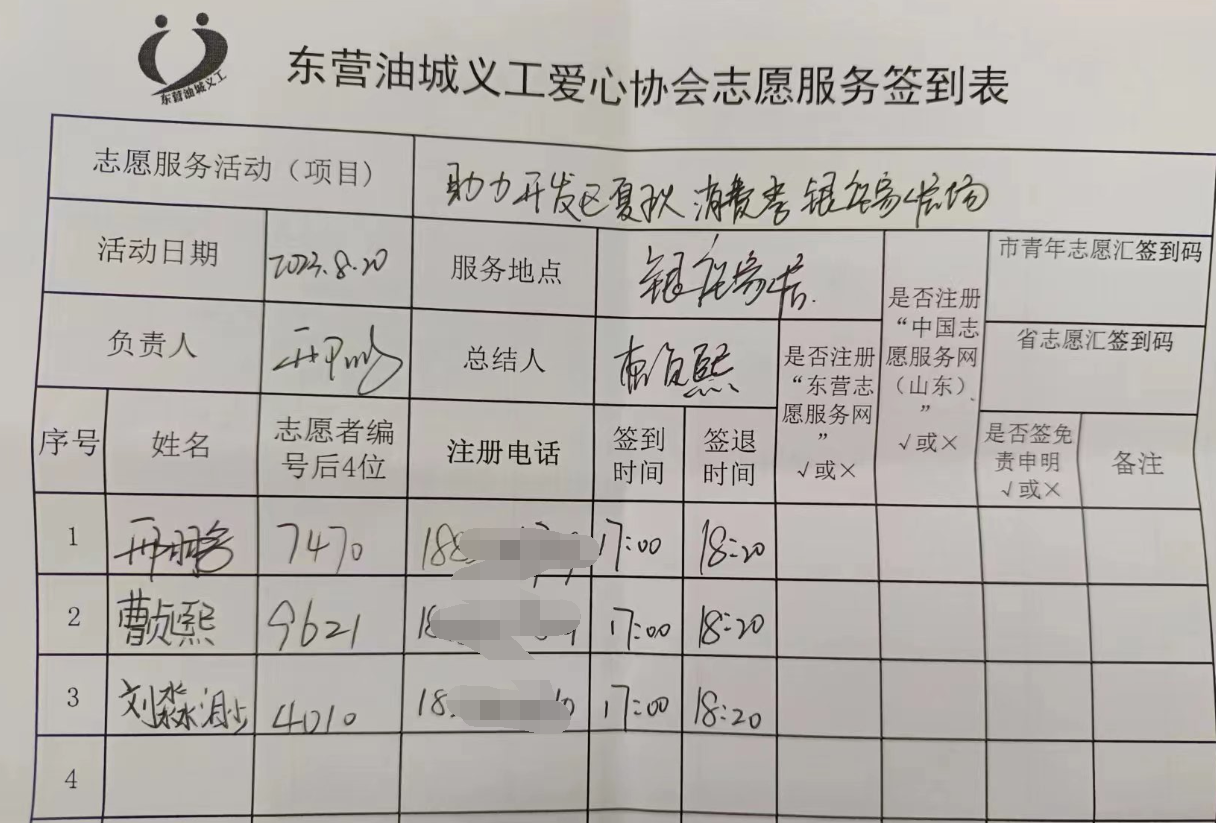 东营油城义工
东营油城义工爱心协会志愿服务签到表
志愿服务活动（项目）
助力开发区夏秋消费季银座家居场
活动日期
2023.8.20
服务地点
银座家居.
负责人
总结人
熙
是否注册
“东营志
愿服务网
”
√或×
是否注册
“中国志
愿服务网
（山东）
”
√或×
市青年志愿汇签到码
省志愿汇签到码
序号
姓名
志愿者编
号后4位
注册电话
签到
时间
签退
时间
是否签免
责申明
√或×
备注
1
7470
18
17:00
18:20
2
曹贞熙
9621
18
17:00
18:20
3
刘淼
4010
18
17:00
18:20
4